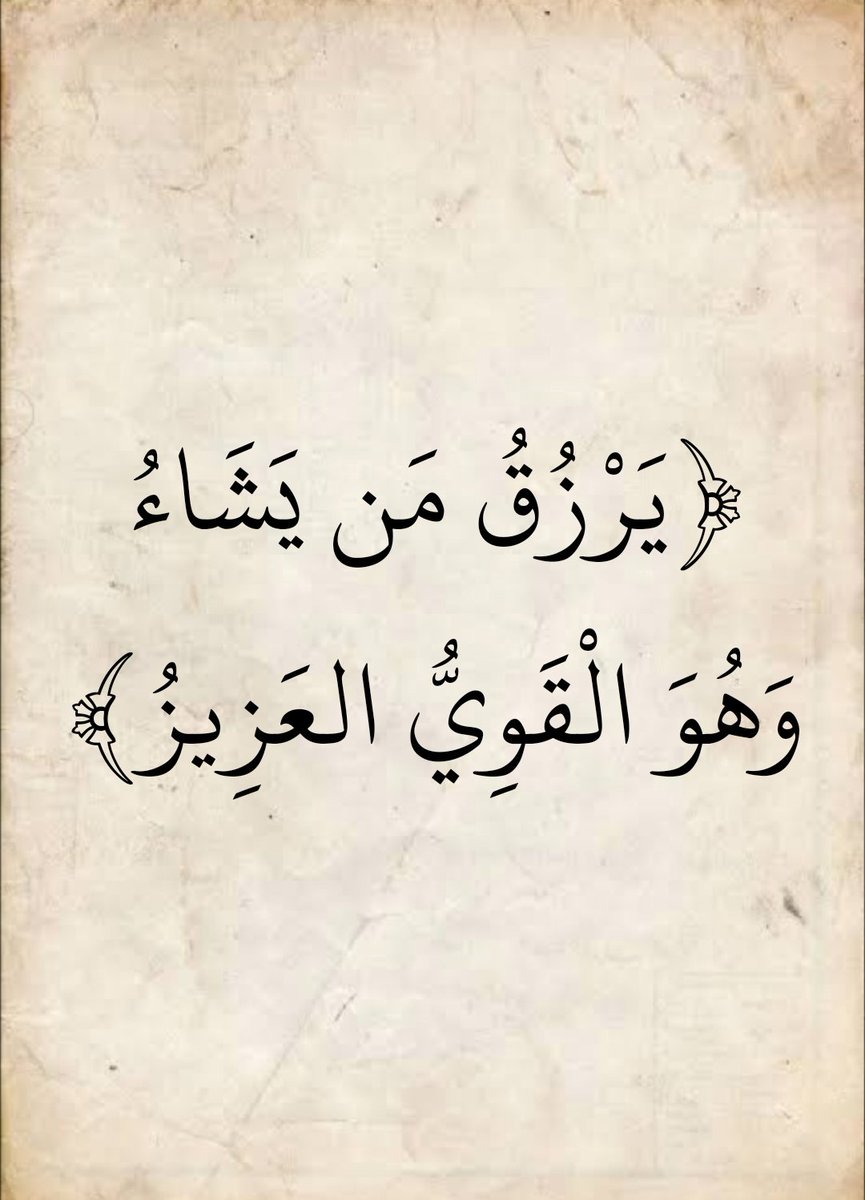 ﴿يَرْزُقُ مَن يَشَاءُ
وَهُوَ الْقَوِيُّ العَزِيزُ﴾